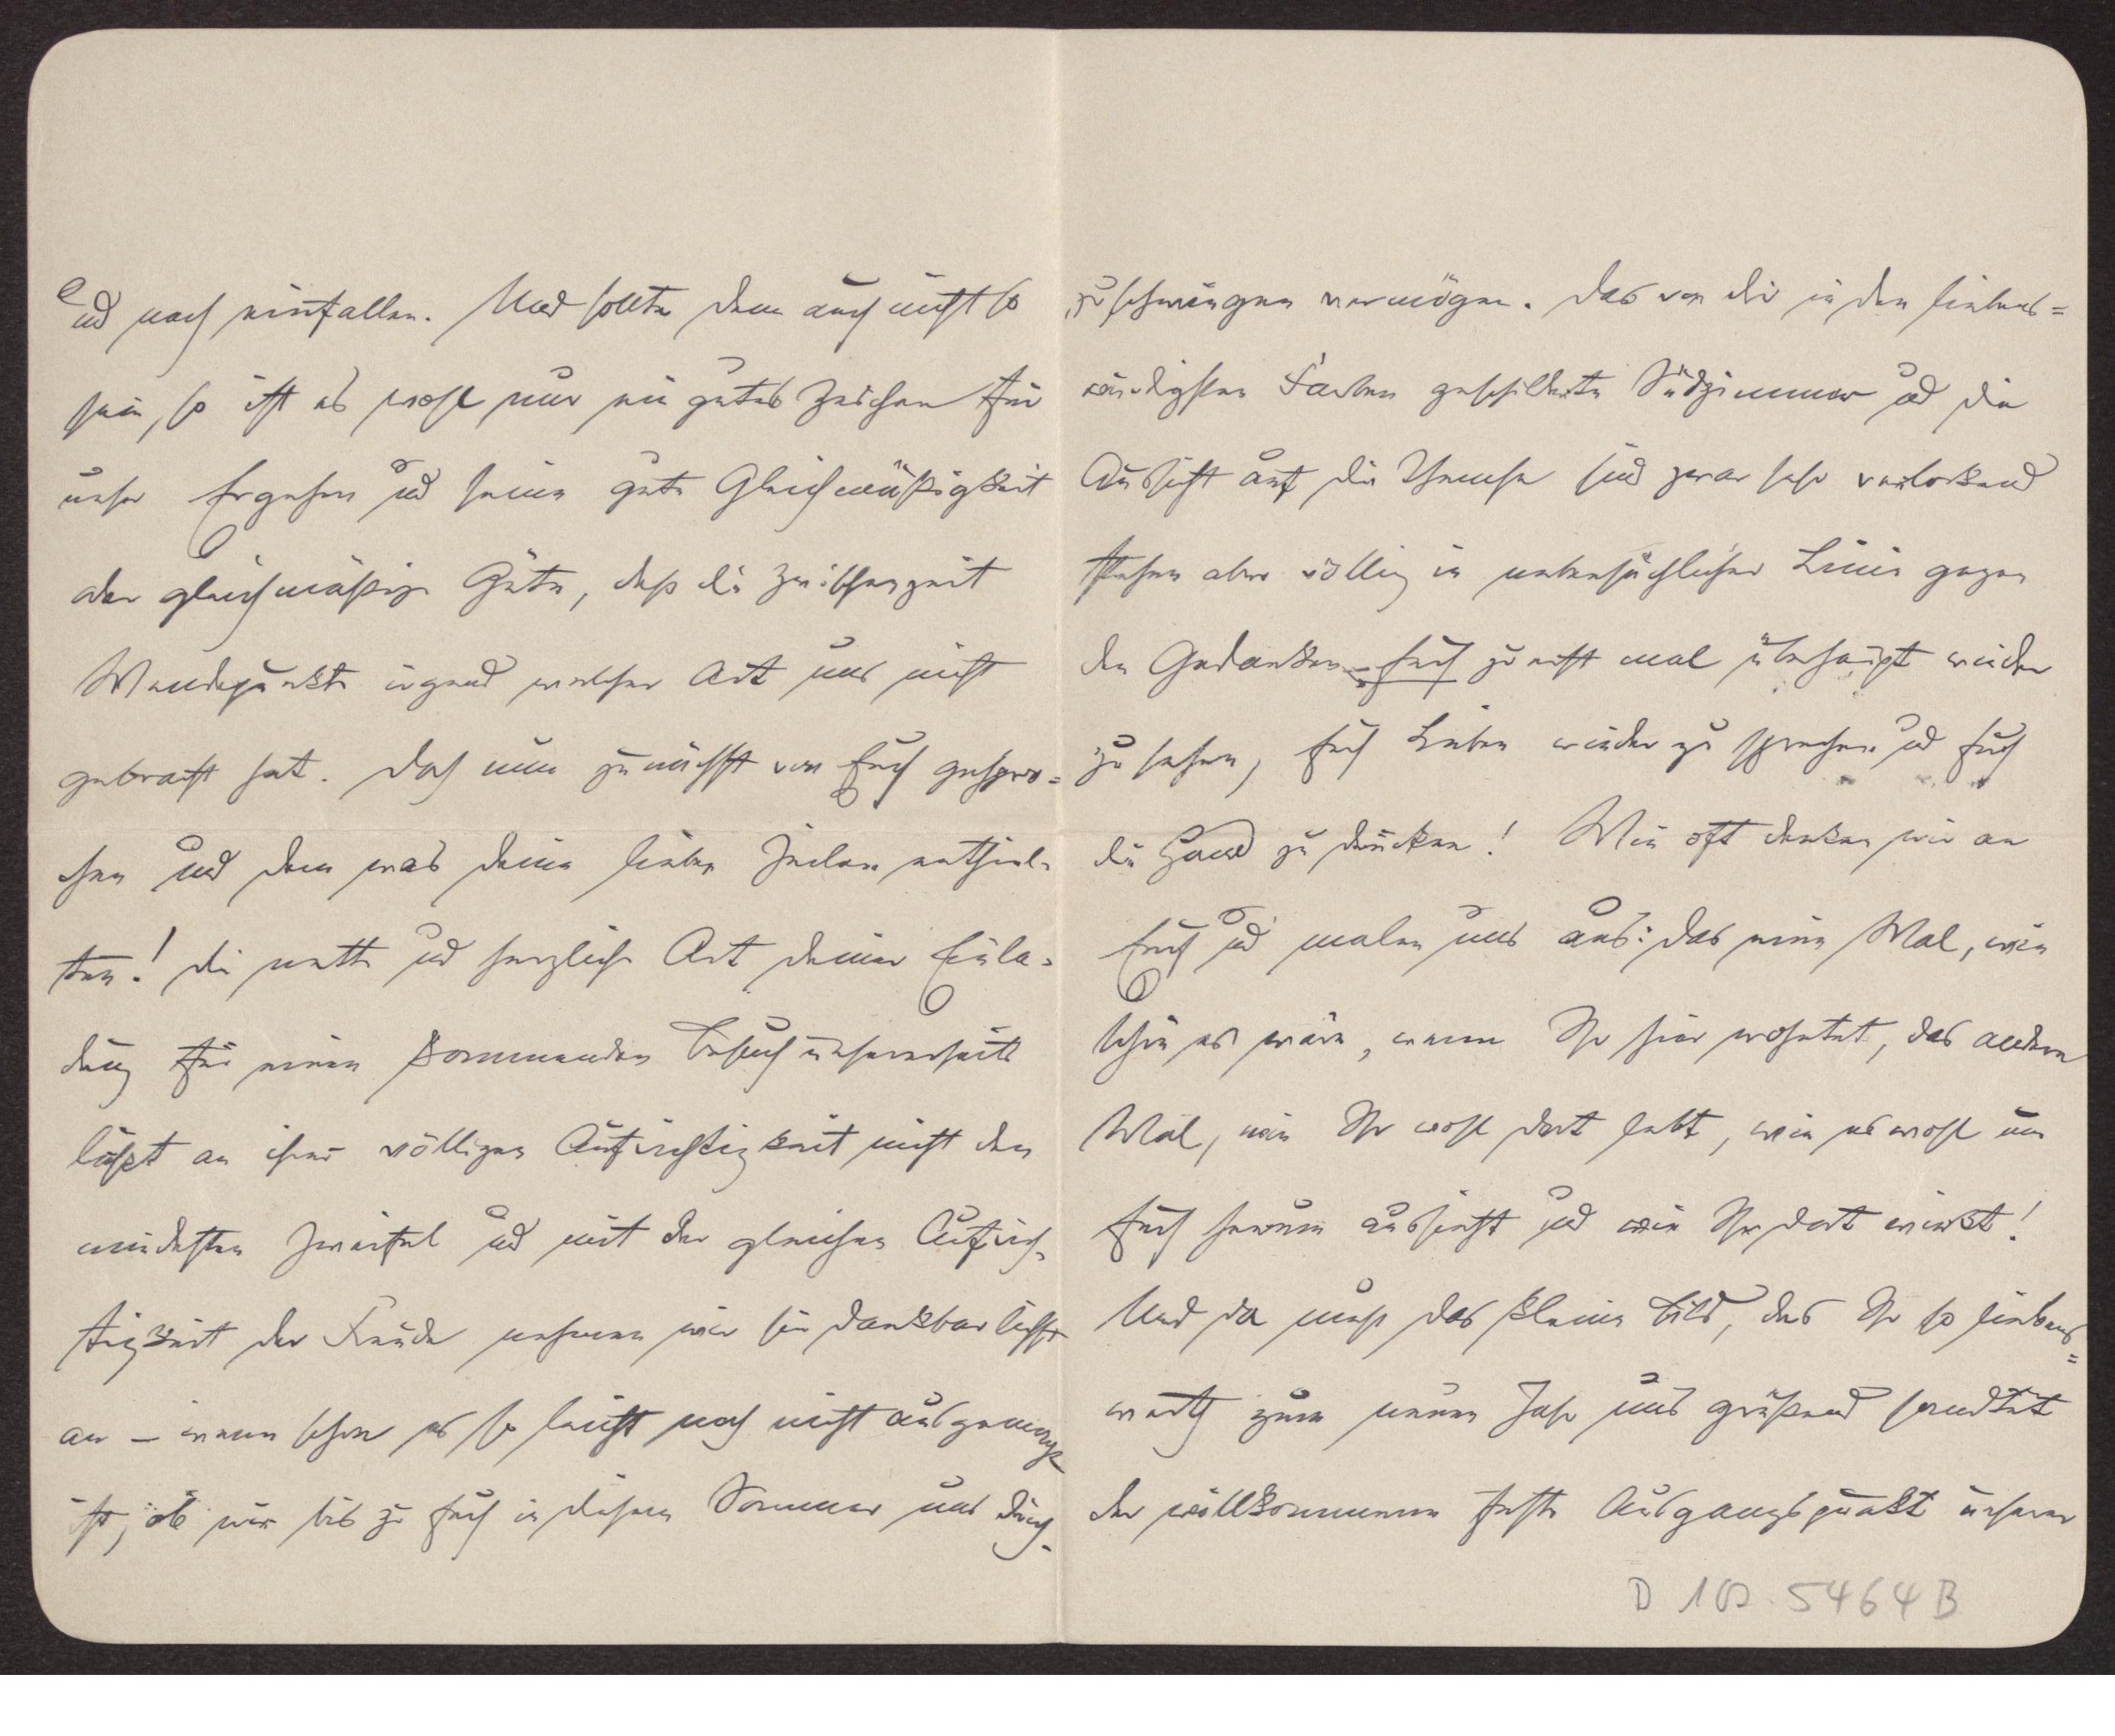 und noch einfallen. Und sollte dem auch nicht so
sein, so ist es wohl nur ein gutes Zeichen für
unser Ergehen und seine gute Gleichmäßigkeit
oder gleichmäßige Güte, daß die Zwischenzeit
Wendepunkte irgend welcher Art uns nicht
gebracht hat. Doch nun zunächst von Euch gespro=
chen und dem was deine lieben Zeilen enthiel=
ten! Die nette und herzliche Art deiner Einla=
dung für einen kommenden Besuch unsererseits
läßt an ihrer völligen Aufrichtigkeit nicht den
mindesten Zweifel und mit der gleichen Aufrich=
tigkeit der Freude nehmen wir sie dankbarlichst
an – wenn schon es so leicht noch nicht ausgemacht
ist, ob wir bis zu Euch in diesem Sommer uns durch=
zuschwingen vermögen. Das von dir in den liebens=
würdigsten Farben geschilderte Südzimmer und die
Aussicht auf die Themse sind zwar sehr verlockend
stehen aber völlig in nebensächlicher Linie gegen
den Gedanken Euch zuerst mal überhaupt wieder
zu sehen, Euch Lieben wieder zu sprechen und Euch
die Hand zu drücken! Wie oft denken wir an
Euch und malen uns aus: das eine Mal, wie
schön es wäre, wenn Ihr hier wohntet, das andere
Mal, wie Ihr wohl dort lebt, wie es wohl um
Euch herum aussieht und wie Ihr dort wirkt!
Und da muß das kleine Bild, das Ihr so liebens=
werth zum neuen Jahr uns grüßend sendtet
der willkommene feste Ausgangspunkt unserer
D 5464 B